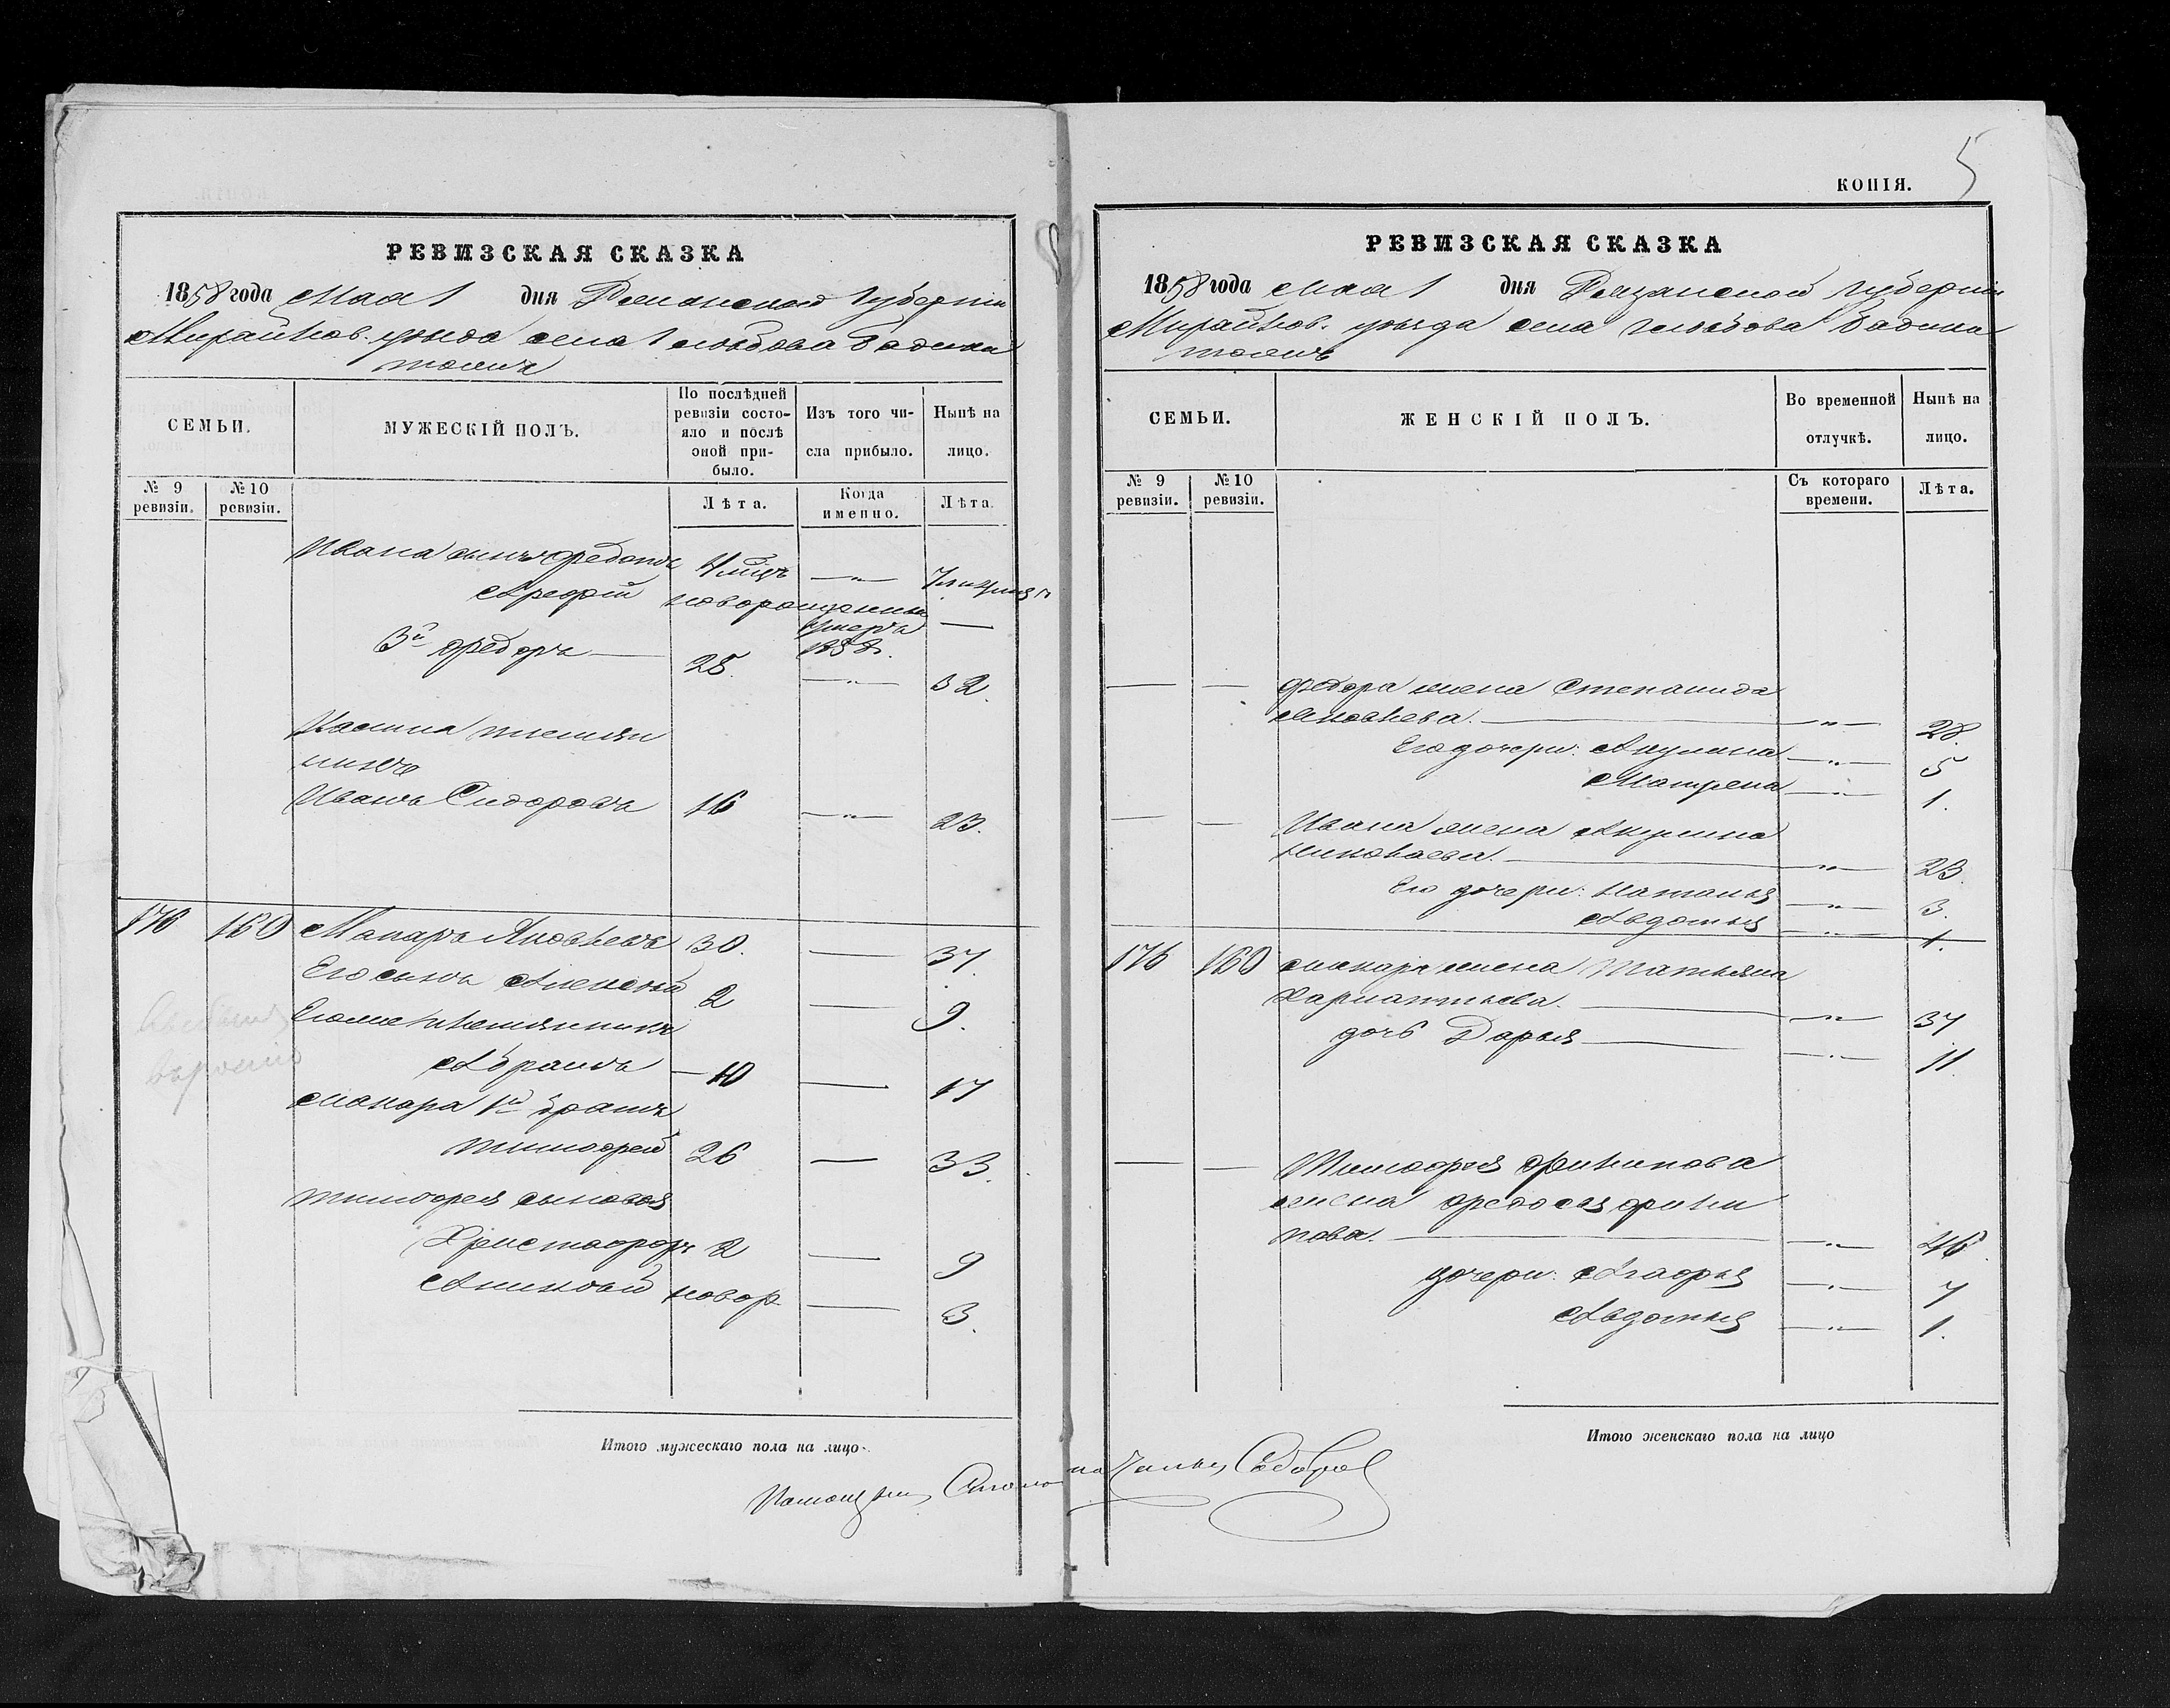 РЕВИЗСКАЯ СКАЗКА
1858 года Мая 1 дня Рязанской Губерніи
Михайлов. уѣзда села Глѣбова Бадина
тожъ
СЕМЬИ.
МУЖЕСКІЙ ПОЛЪ.
По послѣдней ревизіи состояло и послѣ оной прибыло.
Изъ того числа прибыло.
Нынѣ на лицо.
№ 9 ревизіи.
№ 10 ревизіи.
Лѣта.
Когда именно.
Лѣта.
Ивана сынъ Федотъ 4 мѣц. — " — 7
Арефій новорожденный умеръ 1858. —
3й Федоръ — 25. — " — 32.
племян
никъ
Иванъ Сидоровъ 16 — " — 23.
176 160 Макаръ Яковлевъ 30. — 37.
Его сынъ Алексѣй 2 — 9.
Его же племянникъ
Абрамъ — 10 — 17
Макара 1й братъ
Тимофей 26 — 33.
Тимофея сыновья
Христофоръ 2 — 9
новор. — 3.
Итого мужескаго пола на лицо
КОПІЯ.
5
РЕВИЗСКАЯ СКАЗКА
1858 года мая 1 дня Рязанской губерніи
Михайлов. уѣзда села Глѣбова Бадина
тожъ
СЕМЬИ.
ЖЕНСКІЙ ПОЛЪ.
Во временной отлучкѣ.
Нынѣ на лицо.
№ 9 ревизіи.
№ 10 ревизіи.
Съ котораго времени.
Лѣта.
— — Федора жена Степанида
Яковлева. — " — 28.
Его дочери: Акулина — " — 5
Матрена — " — 1.
— — Ивана жена Акулина
Николаева. — " — 23.
Его дочери: Наталья — " — 3.
Авдотья — " — 1.
176 160 Макара жена Татьяна
— " — 37
дочь Дарья — " — 11
— — Тимофея Филипова
жена Федосья Фили
пова. — " — 46
дочери: Агафья — " — 7
Авдотья — " — 1.
Итого женскаго пола на лицо